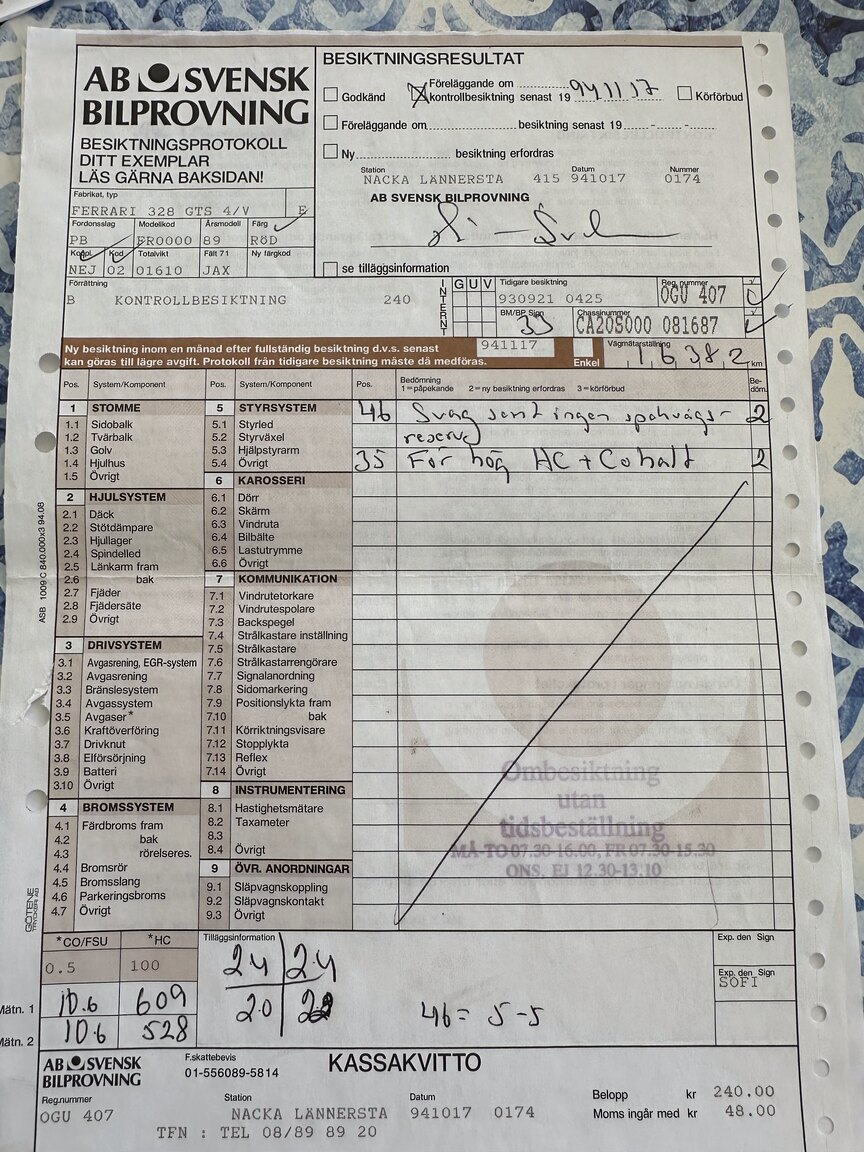 AB SVENSK
BILPROVNING
BESIKTNINGSPROTOKOLL
DITT EXEMPLAR
LÄS GÄRNA BAKSIDAN!
BESIKTNINGSRESULTAT
Godkänd
Föreläggande om
kontrollbesiktning senast 19 941117
Körförbud
Föreläggande om besiktning senast 19 - -
Ny besiktning erfordras
Station Datum Nummer
NACKA LÄNNERSTA 415 941017 0174
AB SVENSK BILPROVNING
se tilläggsinformation
Fabrikat, typ
FERRARI 328 GTS 4/V E
Fordonsslag Modellkod Årsmodell Färg
PB FR0000 89 RÖD
Kaross Kod Totalvikt Fält 71 Ny färgkod
NEJ 02 01610 JAX
Förrättning
B KONTROLLBESIKTNING 240
INTERNT
G U V
Tidigare besiktning
930921 0425
Reg.nummer
OGU 407
BM/BP Sign
33
Chassinummer
CA20S000 081687
Ny besiktning inom en månad efter fullständig besiktning d.v.s. senast 941117
kan göras till lägre avgift. Protokoll från tidigare besiktning måste då medföras.
Enkel
Vägmätarställning
16382 km
Pos. System/Komponent Pos. System/Komponent
Pos. Bedömning
1 = påpekande 2 = ny besiktning erfordras 3 = körförbud
Be-
döm.
1 STOMME
1.1 Sidobalk
1.2 Tvärbalk
1.3 Golv
1.4 Hjulhus
1.5 Övrigt
2 HJULSYSTEM
2.1 Däck
2.2 Stötdämpare
2.3 Hjullager
2.4 Spindelled
2.5 Länkarm fram
2.6 bak
2.7 Fjäder
2.8 Fjädersäte
2.9 Övrigt
3 DRIVSYSTEM
3.1 Avgasrening, EGR-system
3.2 Avgasrening
3.3 Bränslesystem
3.4 Avgassystem
3.5 Avgaser*
3.6 Kraftöverföring
3.7 Drivknut
3.8 Elförsörjning
3.9 Batteri
3.10 Övrigt
4 BROMSSYSTEM
4.1 Färdbroms fram
4.2 bak
4.3 rörelseres.
4.4 Bromsrör
4.5 Bromsslang
4.6 Parkeringsbroms
4.7 Övrigt
5 STYRSYSTEM
5.1 Styrled
5.2 Styrväxel
5.3 Hjälpstyrarm
5.4 Övrigt
6 KAROSSERI
6.1 Dörr
6.2 Skärm
6.3 Vindruta
6.4 Bilbälte
6.5 Lastutrymme
6.6 Övrigt
7 KOMMUNIKATION
7.1 Vindrutetorkare
7.2 Vindrutespolare
7.3 Backspegel
7.4 Strålkastare inställning
7.5 Strålkastare
7.6 Strålkastarrengörare
7.7 Signalanordning
7.8 Sidomarkering
7.9 Positionslykta fram
7.10 bak
7.11 Körriktningsvisare
7.12 Stopplykta
7.13 Reflex
7.14 Övrigt
8 INSTRUMENTERING
8.1 Hastighetsmätare
8.2 Taxameter
8.3
8.4 Övrigt
9 ÖVR. ANORDNINGAR
9.1 Släpvagnskoppling
9.2 Släpvagnskontakt
9.3 Övrigt
46 Svag samt ingen spakvägs- 2
reserv
35 För hög HC + Cohalt 2
Ombesiktning
utan
tidsbeställning
MÅ-TO 07.30-16.00, FR 07.30-15.30
ONS. EJ 12.30-13.10
ASB 1009 C 840.000x3 94.08
GÖTENE
TRYCKERI AB
*CO/FSU *HC
0.5 100
Mätn. 1 10.6 609
Mätn. 2 10.6 528
Tilläggsinformation
24 24
20 22
46 = 5-5
Exp. den Sign
Exp. den Sign
SOFI
AB SVENSK
BILPROVNING
F.skattebevis
01-556089-5814
KASSAKVITTO
Reg.nummer
OGU 407
Station Datum
NACKA LÄNNERSTA 941017 0174
TFN : TEL 08/89 89 20
Belopp kr 240.00
Moms ingår med kr 48.00